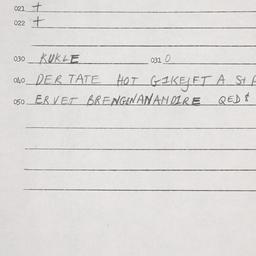 021 +
022 +
030 KUKLE 031 0
040 DER TATE HOT GIKEJET A
050 ERVET BRENGUNANANDIRE QED